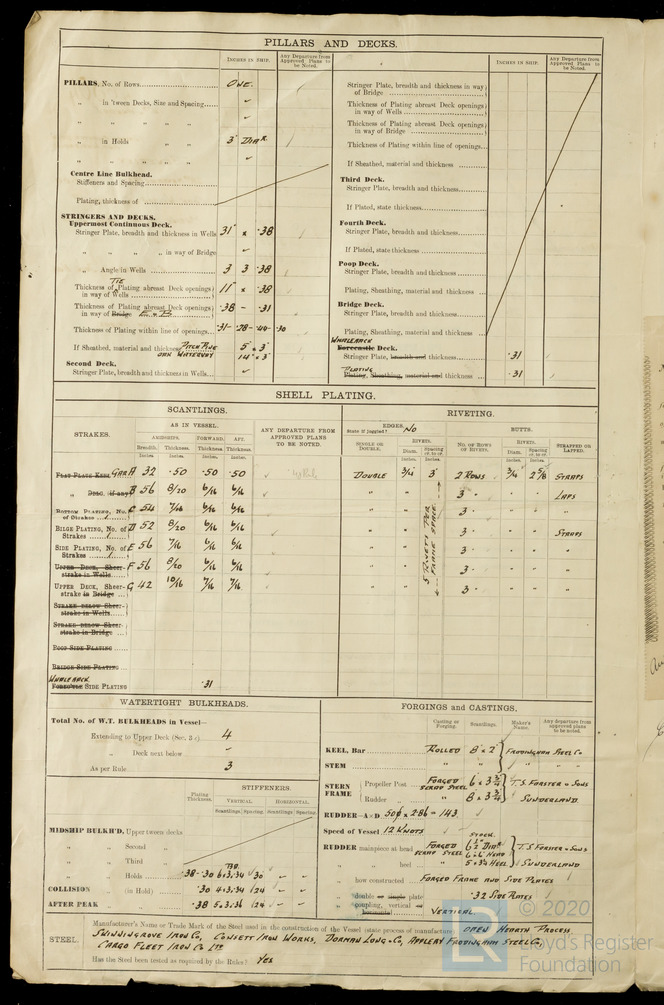 PILLARS AND DECKS.
INCHES IN SHIP.
Any Departure from Approved Plans to be Noted.
PILLARS, No. of Rows ONE.
" in 'tween Decks, Size and Spacing
" " " "
" in Holds " " 3" DIAR
" " " "
Centre Line Bulkhead.
Stiffeners and Spacing
Plating, thickness of
STRINGERS AND DECKS.
Uppermost Continuous Deck.
Stringer Plate, breadth and thickness in Wells 31" x .38
" " " " in way of Bridge
" Angle in Wells 3 3 .38
TIE
Thickness of Plating abreast Deck openings in way of Wells 11" x .38
Thickness of Plating abreast Deck openings in way of Bridge E & B. .38 - .31
Thickness of Plating within line of openings .31- .28 -.44- .30
If Sheathed, material and thickness PITCH PINE 5" x 3"
OAK WATERWAY 14" x 3"
Second Deck.
Stringer Plate, breadth and thickness in Wells
INCHES IN SHIP.
Any Departure from Approved Plans to be Noted.
Stringer Plate, breadth and thickness in way of Bridge
Thickness of Plating abreast Deck openings in way of Wells
Thickness of Plating abreast Deck openings in way of Bridge
Thickness of Plating within line of openings
If Sheathed, material and thickness
Third Deck.
Stringer Plate, breadth and thickness
If Plated, state thickness
Fourth Deck.
Stringer Plate, breadth and thickness
If Plated, state thickness
Poop Deck.
Stringer Plate, breadth and thickness
Plating, Sheathing, material and thickness
Bridge Deck.
Stringer Plate, breadth and thickness
Plating, Sheathing, material and thickness
WHALEBACK
Forecastle Deck.
Stringer Plate, breadth and thickness .31
PLATING
Plating, Sheathing, material and thickness .31
SHELL PLATING.
SCANTLINGS.
RIVETING.
STRAKES.
AS IN VESSEL.
AMIDSHIPS. FORWARD. AFT.
Breadth. Thickness. Thickness. Thickness.
Inches Inches. Inches. Inches.
ANY DEPARTURE FROM APPROVED PLANS TO BE NOTED.
EDGES. NO
State if joggled?
BUTTS.
SINGLE OR DOUBLE.
RIVETS.
Diam. Spacing cr. to cr.
Inches. Inches.
NO. OF ROWS OF RIVETS.
RIVETS.
Diam. Spacing cr. to cr.
Inches. Inches.
STRAPPED OR LAPPED.
FLAT PLATE KEEL GAR A 32 .50 .50 .50 DOUBLE 3/4" 3" 2 ROWS 3/4 2 5/8 STRAPS
" DBLG. (if any) B 56 8/20 6/16 6/16 " " 3 " " " LAPS
BOTTOM PLATING, No. of Strakes C 54 7/16 6/16 6/16 " " 3 " " " "
BILGE PLATING, No. of Strakes D 52 8/20 6/16 6/16 " " 3 " " " STRAPS
SIDE PLATING, No. of Strakes E 56 7/16 6/16 6/16 " " 3 " " " "
UPPER DECK, Sheer-strake in Wells F 56 8/20 6/16 6/16 " " 3 " " " "
UPPER DECK, Sheer-strake in Bridge G 42 10/16 7/16 7/16 " " 3 " " " "
5 RIVETS PER FRAME SPACE
STRAKE BELOW Sheer-strake in Wells
STRAKE BELOW Sheer-strake in Bridge
POOP SIDE PLATING
BRIDGE SIDE PLATING
WHALEBACK
FORECASTLE SIDE PLATING .31
WATERTIGHT BULKHEADS.
Total No. of W.T. BULKHEADS in Vessel—
Extending to Upper Deck (Sec. 3 c) 4
" Deck next below
As per Rule 3
Plating Thickness.
STIFFENERS.
VERTICAL. HORIZONTAL.
Scantlings. Spacing. Scantlings. Spacing.
MIDSHIP BULKH'D, Upper tween decks
" " Second "
" " Third "
" " Holds .38-.30 6x3x.34 30 - -
COLLISION " (in Hold) .30 4x3x.34 24 - -
AFTER PEAK " " .38 5x3x.36 24 - -
FORGINGS and CASTINGS.
Casting or Forging. Scantlings. Maker's Name. Any departure from approved plans to be noted.
KEEL, Bar ROLLED 8" x 2" FRODINGHAM STEEL Co
STEM " " " "
STERN FRAME
Propeller Post FORGED SCRAP STEEL 6" x 3 3/4" T.S. FORSTER & SONS
Rudder " " 8" x 3 3/4" SUNDERLAND.
RUDDER—A×D 50ϕ x 2.86 = 143.
Speed of Vessel 12 KNOTS
STOCK
RUDDER mainpiece at head FORGED SCRAP STEEL 6 1/2" DIAR T.S. FORSTER & SONS
6" x 6" HEAD
" " heel " 5" x 3 3/4" HEEL SUNDERLAND
" how constructed FORGED FRAME AND SIDE PLATES
" double or single plate .32 SIDE PLATES
" coupling, vertical or horizontal VERTICAL.
STEEL.
Manufacturer's Name or Trade Mark of the Steel used in the construction of the Vessel (state process of manufacture) OPEN HEARTH PROCESS
SKINNINGROVE IRON Co, CONSETT IRON WORKS, DORMAN LONG & Co, APPLEBY FRODINGHAM STEEL Co,
CARGO FLEET IRON Co LTD
Has the Steel been tested as required by the Rules? YES
© 2020
Lloyd's Register
Foundation
LR